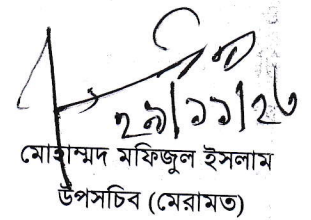 ২৯/১১/২৩
মোহাম্মদ মফিজুল ইসলাম
উপসচিব (মেরামত)